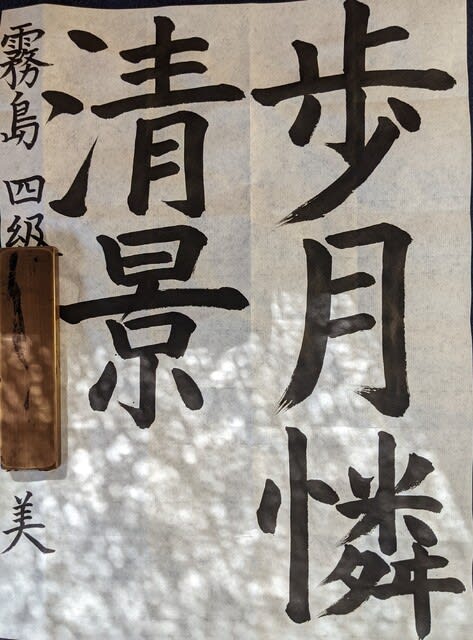 歩月憐
清景
霧島 四級
美